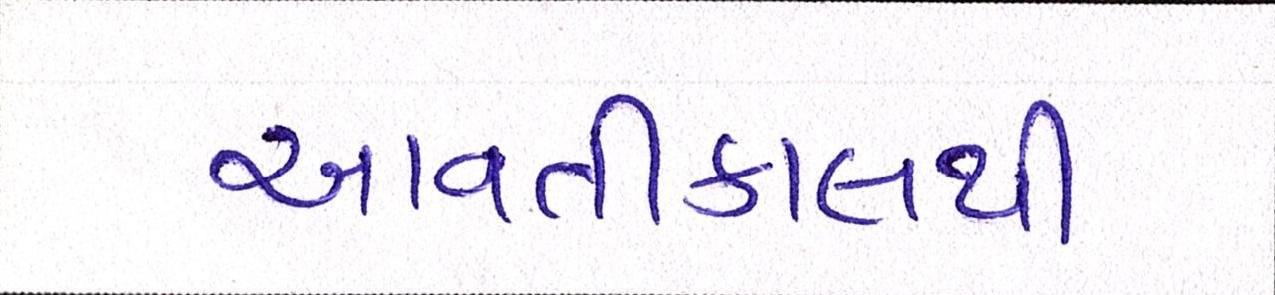 આવતીકાલથી